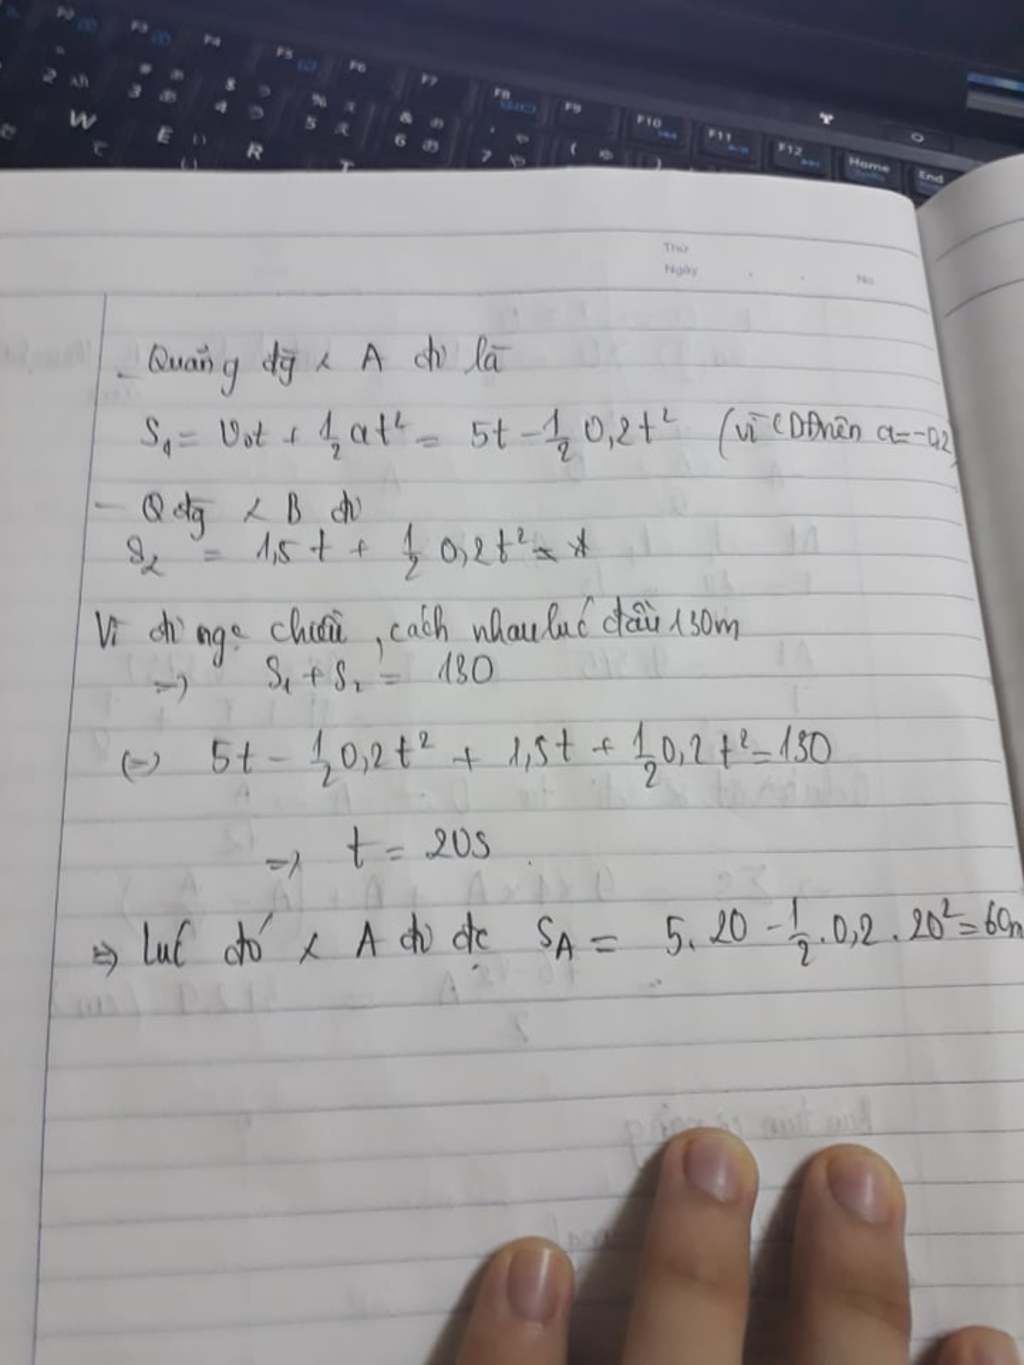 F2 F3 F4 F5 F6 F7 F8 F9 F10 F11 F12 Home End
2 3 4 5 6 7
W E R T
Thứ
Ngày . . No
- Quãng đg x A đi là
S₁ = V₀t + 1/2 at² = 5t - 1/2 0,2t² (vì CDĐ nên a = -0,2)
- Q đg x B đi
S₂ = 1,5t + 1/2 0,2t²
Vì đi ngc chiều, cách nhau lúc đầu 130m
=> S₁ + S₂ = 130
(=) 5t - 1/2 0,2t² + 1,5t + 1/2 0,2t² = 130
=> t = 20s
=> lúc đó x A đi đc S_A = 5.20 - 1/2.0,2.20² = 60m